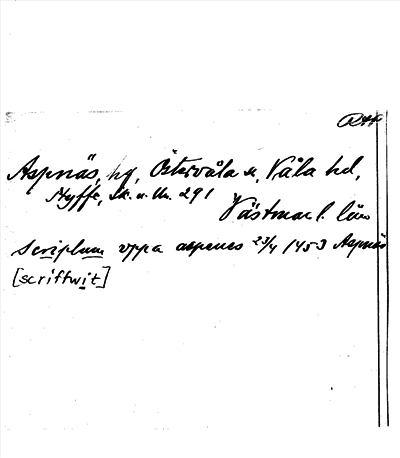 Aspnäs, hg, Östervåla sn, Våla hd,
Västmanl. län
scriptum vppa aspenes 23/4 1453 Aspnäs
[scriffwit]